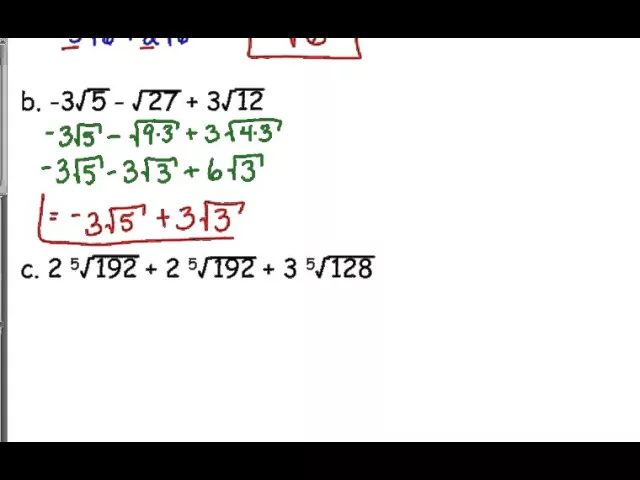 b. -3√5 - √27 + 3√12
-3√5 - √9·3 + 3√4·3
-3√5 - 3√3 + 6√3
= -3√5 + 3√3
c. 2 ⁵√192 + 2 ⁵√192 + 3 ⁵√128